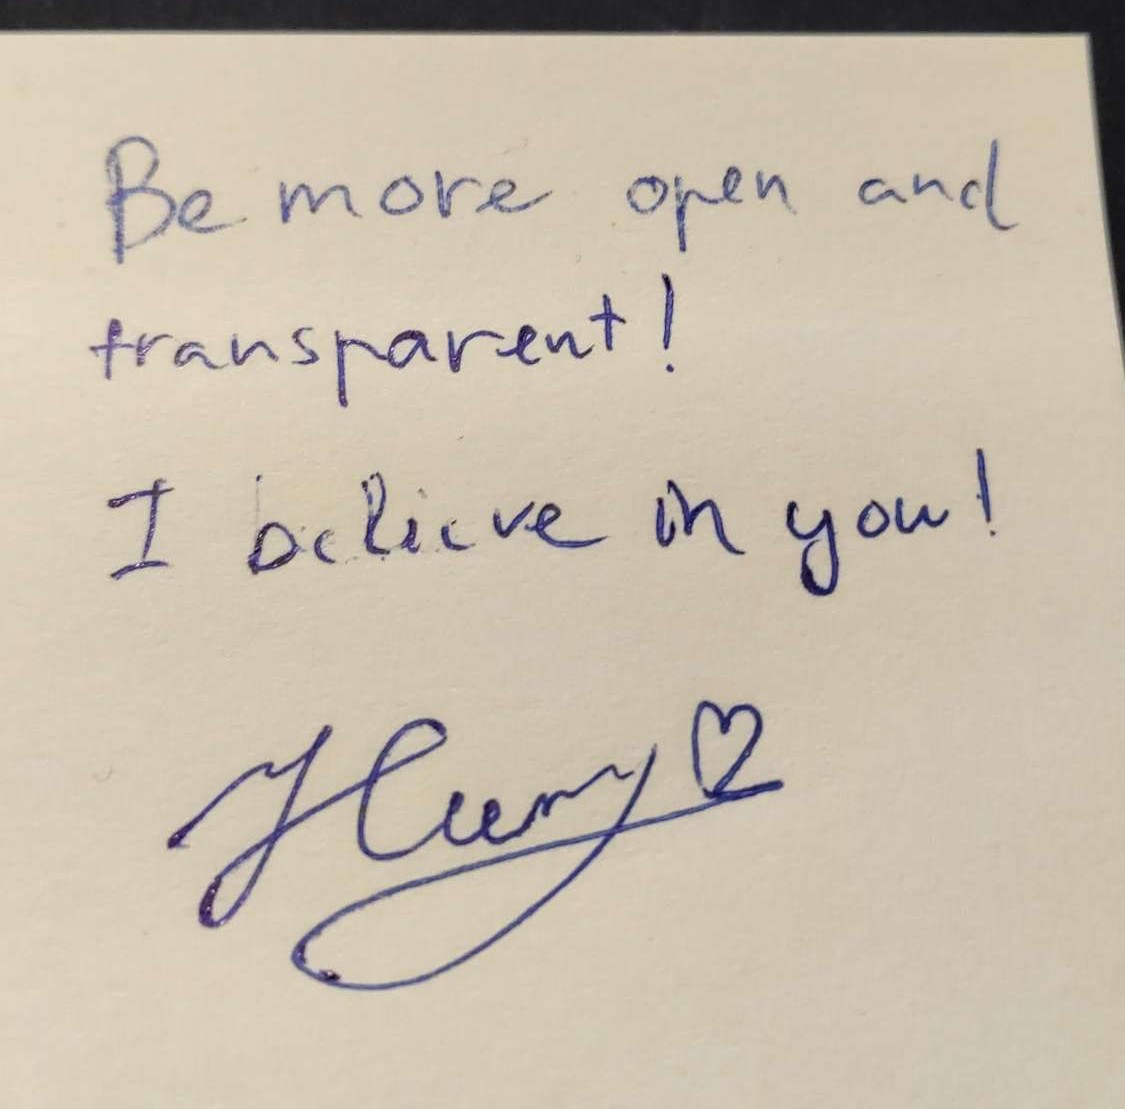 Be more open and
transparent!
I believe in you!